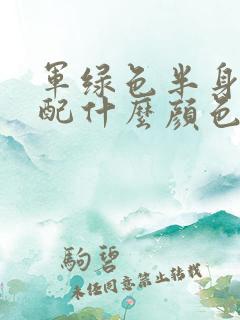 軍绿色半身
配什麼顏色
駒碧
未经同意禁止转载